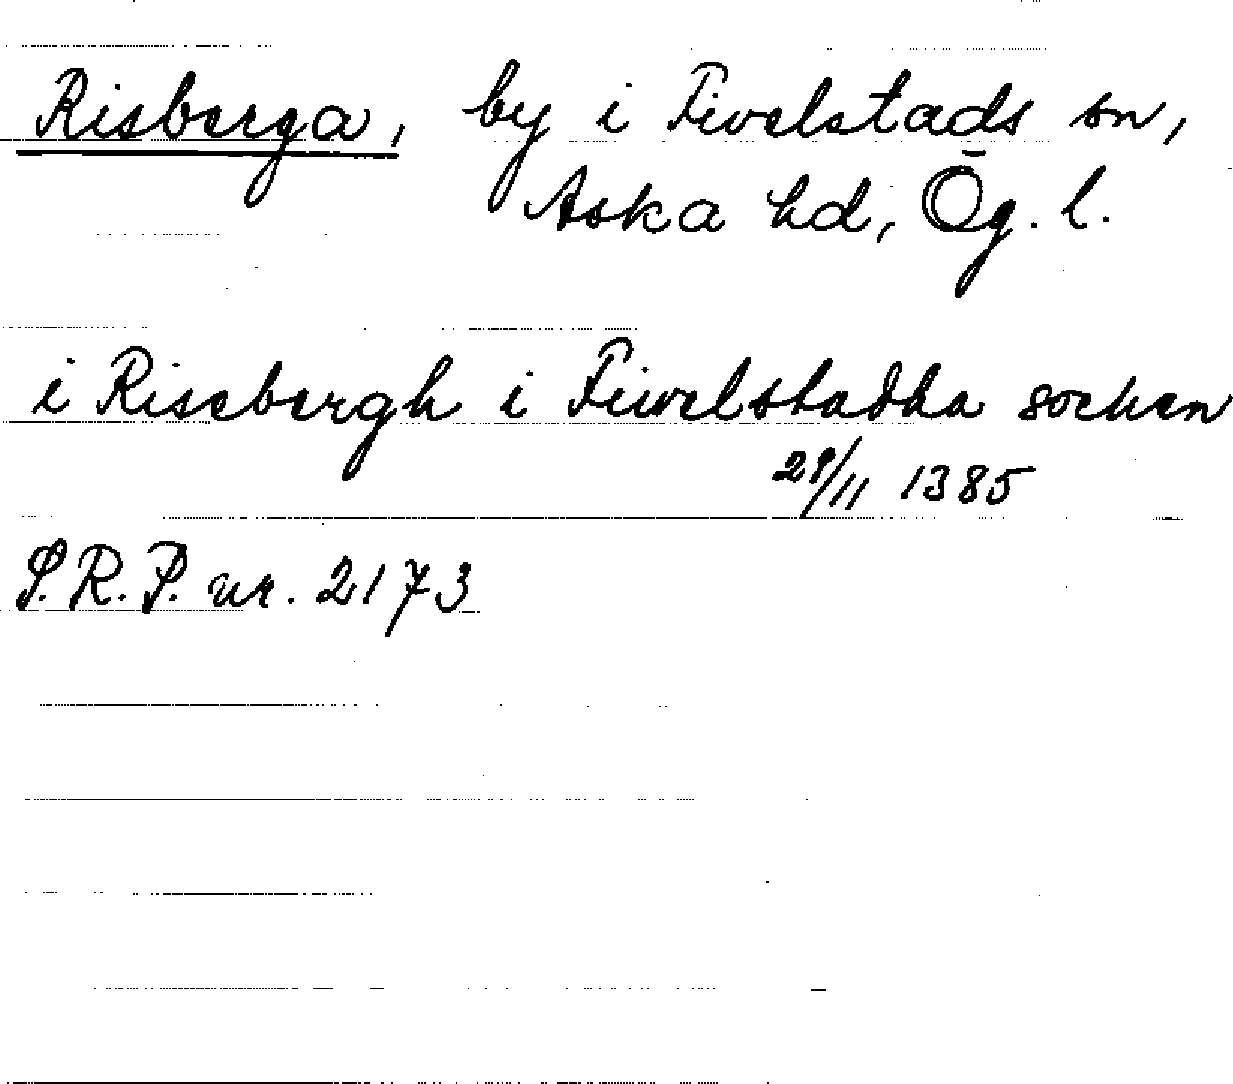 Risberga, by i Fivelstads sn,
Aska hd, Ög. l.
i Risebergh i Fiwelstadha sochen
29/11 1385
S.R.P. nr. 2173